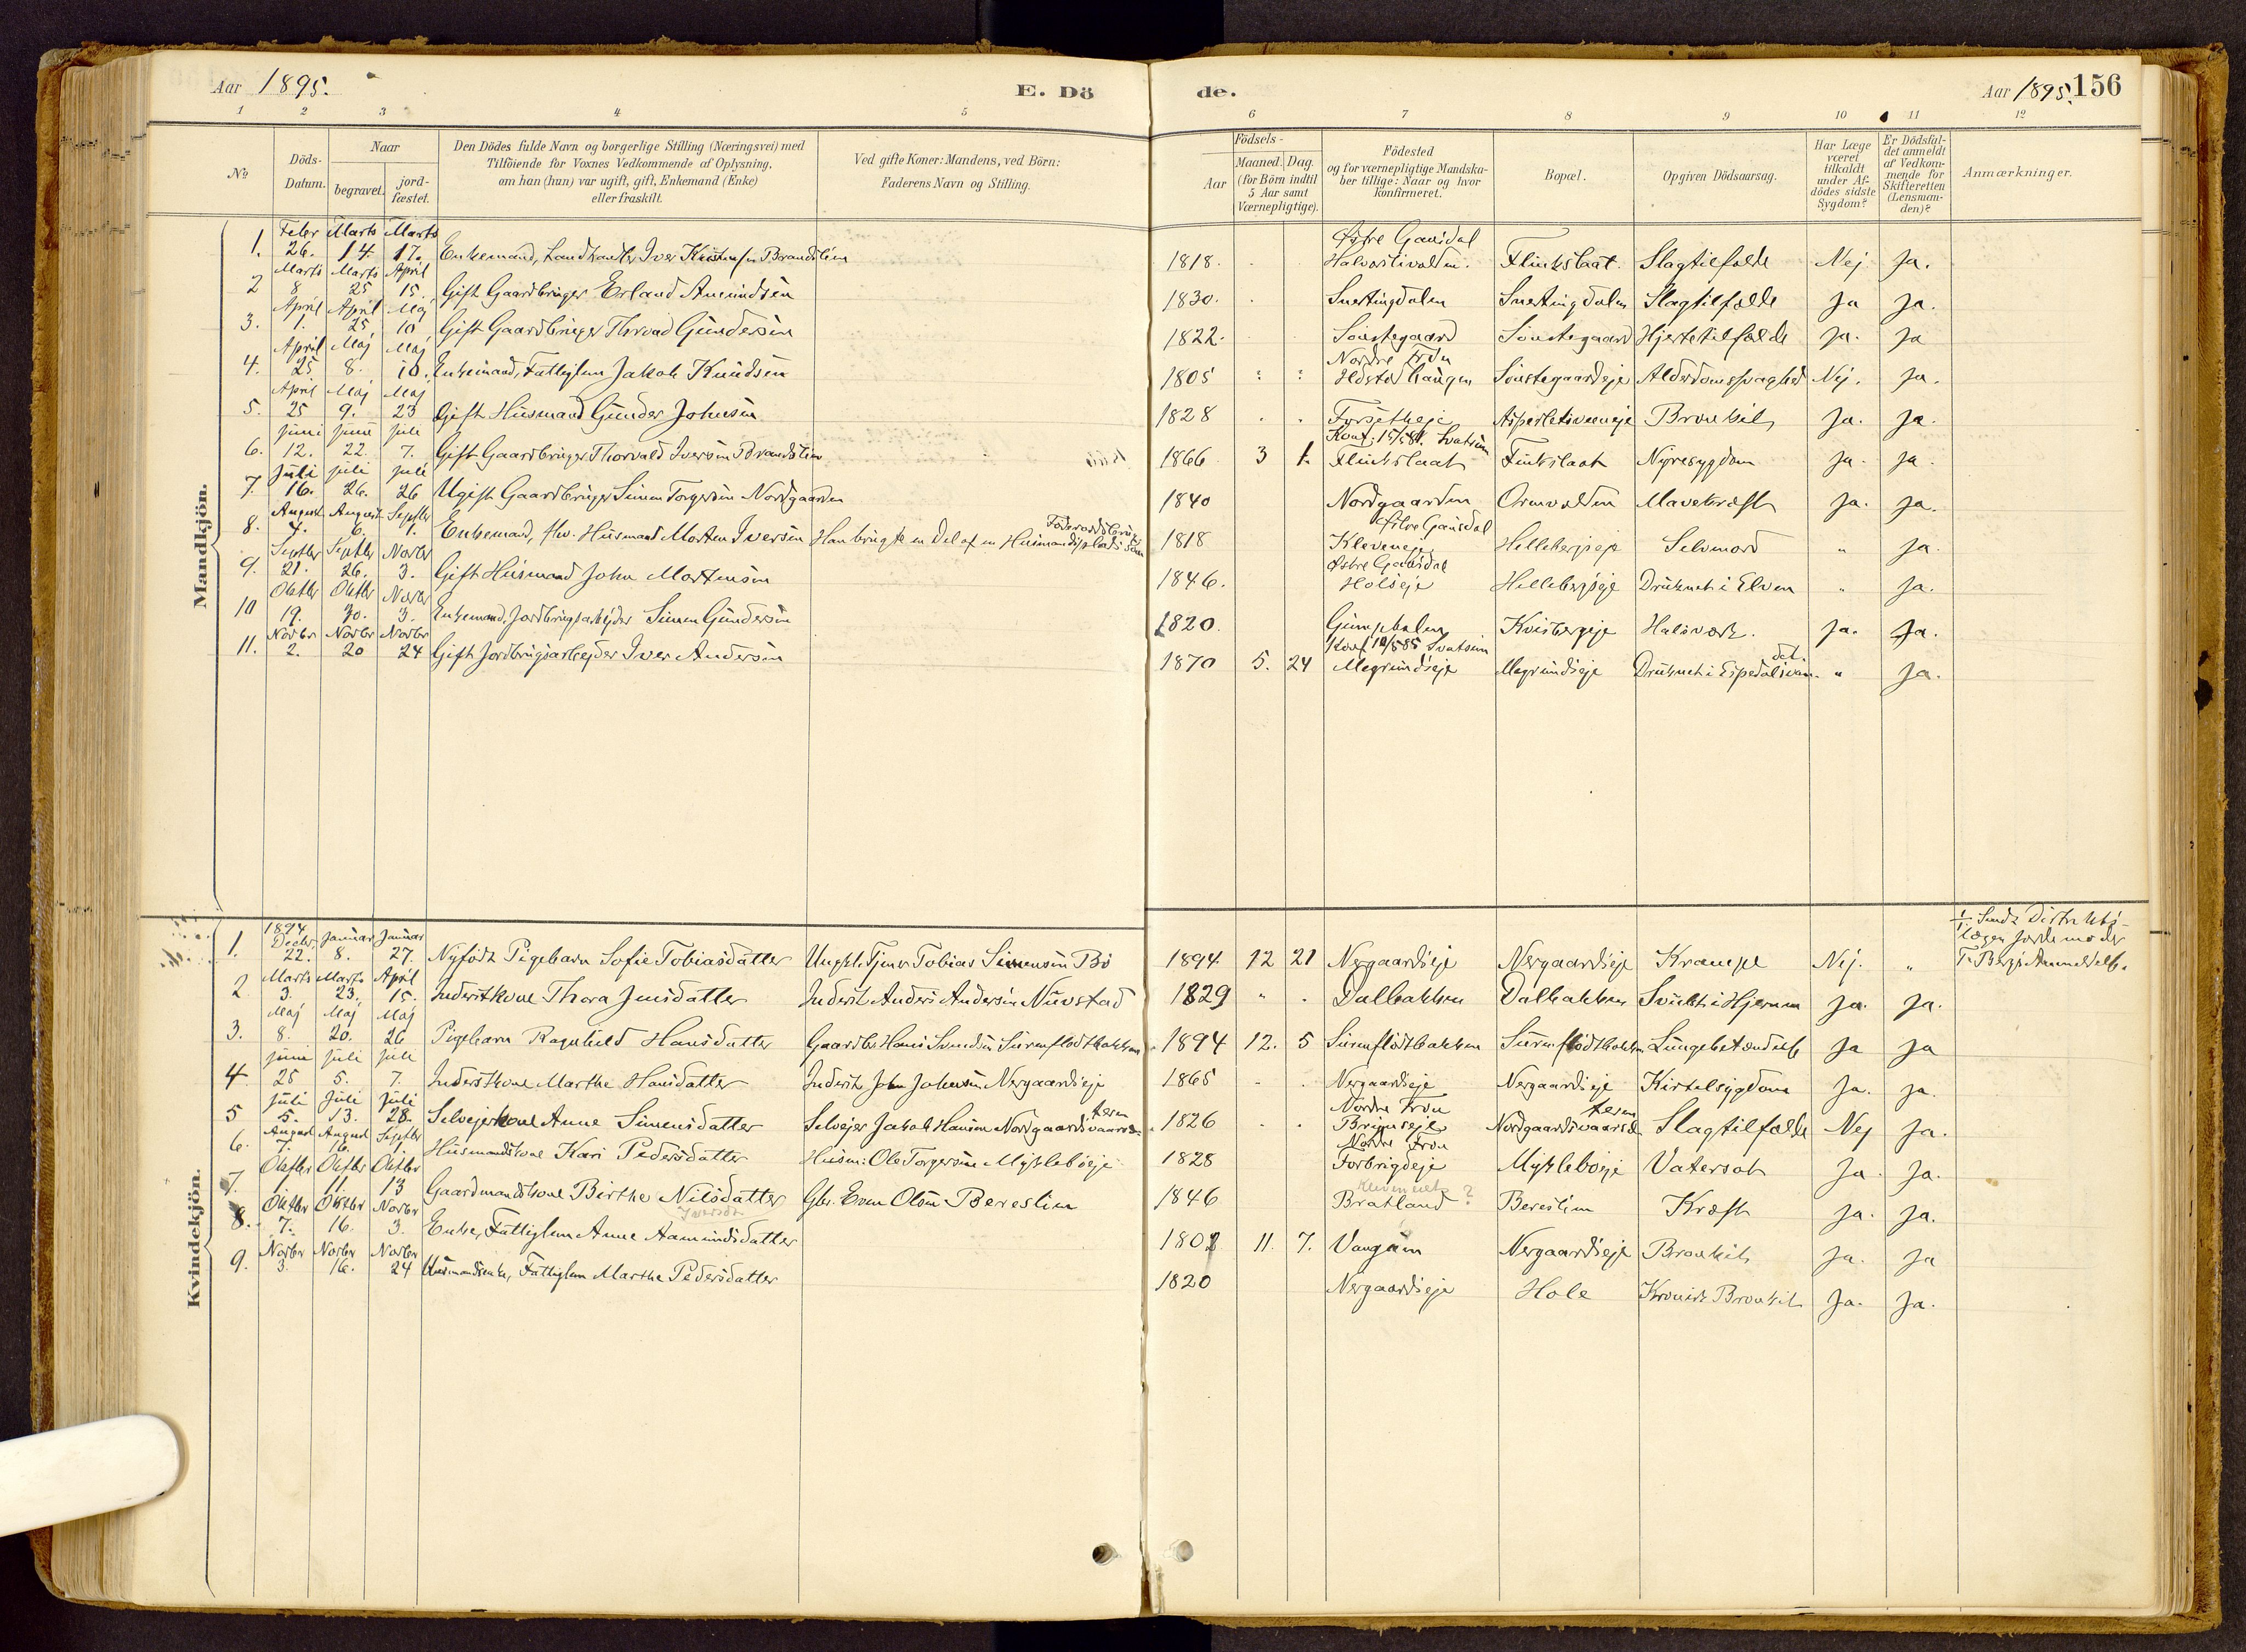 Aar 1895. E. Dö de. Aar 1895. 156
1 2 3 4 5 6 7 8 9 10 11 12
No
Döds-Datum.
Naar
begravet.
jord-fæstet.
Den Dödes fulde Navn og borgerlige Stilling (Næringsvei) med
Tilföiende for Voxnes Vedkommende af Oplysning,
om han (hun) var ugift, gift, Enkemand (Enke)
eller fraskilt.
Ved gifte Koner: Mandens, ved Börn:
Faderens Navn og Stilling.
Födsels-
Aar
Maaned. Dag.
(for Börn indtil
5 Aar samt
Værnepligtige).
Födested
og for værnepligtige Mandska-
ber tillige: Naar og hvor
konfirmeret.
Bopæl.
Opgiven Dödsaarsag.
Har Læge
været
tilkaldt
under Af-
dödes sidste
Sygdom?
Er Dödsfal-
det anmeldt
af Vedkom-
mende for
Skifteretten
(Lensman-
den)?
Anmærkninger.
Mandkjön.
Febr Marts Marts Østre Gausdal
1. 26. 14. 17. Enkemand, Landhandler Iver Brandslien 1818. Flinkslaat. Slagtilfælde Nej Ja.
Marts Marts April
2 8 25 15. Gift Gaardbruger Erland Amundsen 1830. Snertingdalen Snertingdalen Slagtilfælde Ja Ja.
April April Maj
3. 1. 25 10 Gift Gaardbruger Gundersen 1822. Sonstegaard Sonstegaard Hjertetilfælde Ja. Ja
April Maj Maj Nordre Fron
4. 25 8. 10. Enkemand, Fattiglem Jakob Knudsen 1805 Sonstegaardseje Alderdomssvaghed Nej. Ja.
April Maj Maj
5. 25 9. 23 Gift Husmand Gunder Johnsen 1828 Bronkit Ja. Ja.
Juni Juni Juli Konf. 15/5 81. Svatsum
6. 12. 22. 7. Gift Gaardbruger Thorvald Iversen Brandslien 1866 3 1. Flinkslaat Flinkslaat Nyresygdom Ja. Ja.
Juli Juli Juli
7. 16. 26. 26 Ugift Gaardbruger Simen Torgersen Nordgaarden 1840 Nordgaarden Ormvolden Mavekræft Ja. Ja.
August August Septbr Østre Gausdal
8. 7. 6. 1. Enkemand, fhv. Husmand Morten Iversen Han brugte en Del af en Husmandsplads som 1818 Kleveneje Hellebergseje Selvmord " Ja.
Septbr Septbr Novbr Østre Gausdal
9. 21. 26. 3. Gift Husmand John Mortensen 1846. Holseje Hellebergseje Druknet i Elven " Ja.
Oktbr Oktbr Novbr
10 19. 30. 3. Enkemand, Jordbrugsarbejder Simen Gundersen 1820. Kvisbergeje Halsværk. Ja. Ja.
Novbr Novbr Novbr Konf. 10/5 85 Svatsum
11. 2. 20 24 Gift Jordbrugsarbejder Iver Andersen 1870 5. 24 Megrundseje Megrundseje Druknet i Espedalsvan- det. " Ja.
Kvindekjön.
1894
Decbr. Januar Januar
1. 22. 8. 27. Nyfödt Pigebarn Sofie Tobiasdatter Ungkl. Tjener Tobias Simensen Bö 1894 12 21 Nergaardseje Nergaardseje Krampe Nej. "
T. Bergs Anmeldelse.
Marts Marts April
2 3. 23. 15. Inderstkone Thora Jensdatter Inderst Anders Andersen Nuvstad 1829 " Dalbakken Dalbakken Svulst i Hjernen Ja. Ja.
Maj Maj Maj
3. 8. 20. 26 Pigebarn Ragnhild Hansdatter Gaardbr. Hans Svendsen Surnflödtbakken 1894 12. 5 Surnflödtbakken Surnflödtbakken Lungebetændelse Ja Ja
Juni Juli Juli
4. 25 5. 7. Inderstkone Marthe Hansdatter Inderst John Johnsen Nergaardseje 1865 Nergaardseje Nergaardseje Kirtelsygdom Ja. Ja.
Juli Juli Juli Nordre Fron
5 5. 13. 28. Selvejerkone Anne Simensdatter Selvejer Jakob Hansen Nordgaards 1826 Slagtilfælde Nej Ja.
August August Septbr Nordre Fron
6. 7. 16. 1. Husmandskone Kari Pedersdatter Husm: Ole Torgersen Mykleböeje 1828 Forbrigdeje Mykleböeje Vatersot Ja. Ja.
Oktbr Oktbr Oktbr
7. 1. 11. 13 Gaardmandskone Birthe Nilsdatter Gbr. Even Olsen Bereslien 1846 Bratland ? Bereslien Kræft Ja. Ja.
Oktbr Oktbr Novbr Iversdr
8. 7. 16. 3. Enke, Fattiglem Anne Aamundsdatter 1802 11. 7. Vangen Nergaardseje Bronkit Ja. Ja
Novbr Novbr Novbr
9. 3. 16. 24 Husmandsenke, Fattiglem Marthe Pedersdatter 1820 Nergaardseje Hole Kronisk Bronkit Ja. Ja.